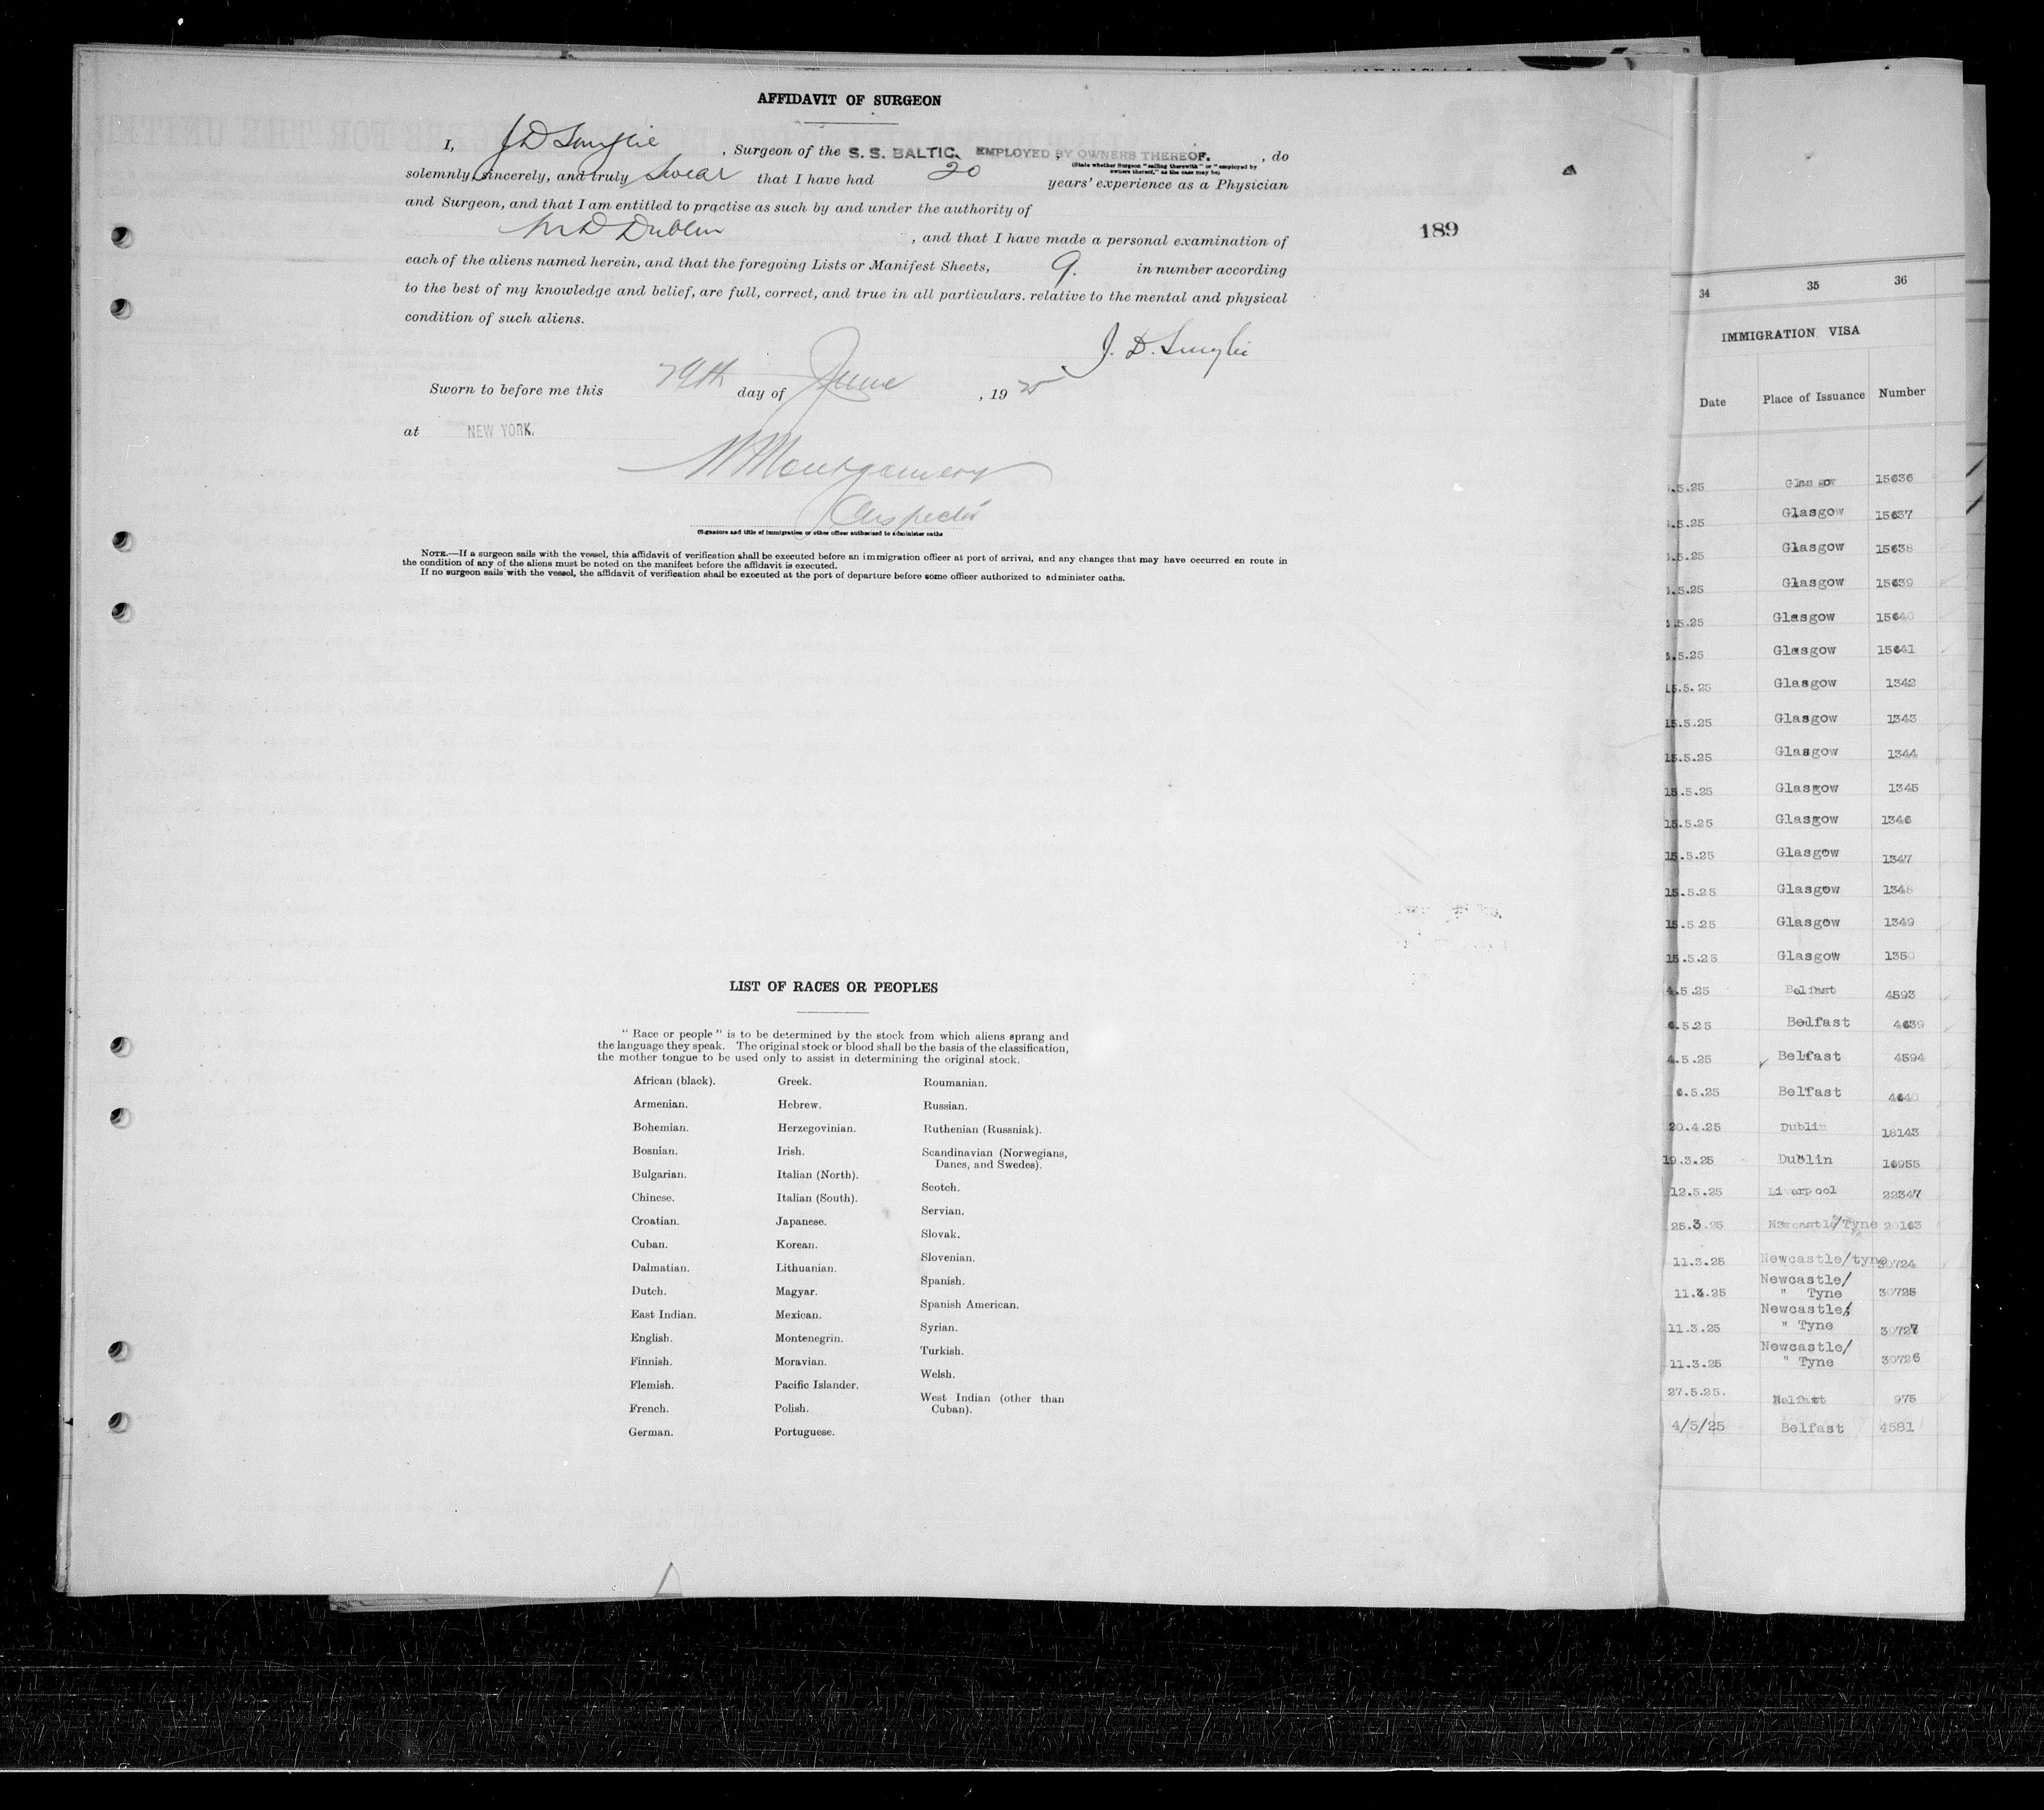 AFFIDAVIT OF SURGEON
I, J D , Surgeon of the S. S. BALTIC, EMPLOYED BY OWNERS THEREOF. , do
(State whether Surgeon "sailing therewith" or "employed by
owners thereof," as the case may be)
solemnly, sincerely, and truly Swear that I have had 20 years' experience as a Physician
and Surgeon, and that I am entitled to practise as such by and under the authority of
M D Dublin , and that I have made a personal examination of
each of the aliens named herein, and that the foregoing Lists or Manifest Sheets, 9. in number according
to the best of my knowledge and belief, are full, correct, and true in all particulars. relative to the mental and physical
condition of such aliens.
J. D.
Sworn to before me this 29th day of June , 19 25
at NEW YORK.
Montgomery
Inspector
(Signature and title of immigration or other officer authorized to administer oaths
NOTE.—If a surgeon sails with the vessel, this affidavit of verification shall be executed before an immigration officer at port of arrival, and any changes that may have occurred en route in
the condition of any of the aliens must be noted on the manifest before the affidavit is executed.
If no surgeon sails with the vessel, the affidavit of verification shall be executed at the port of departure before some officer authorized to administer oaths.
189
LIST OF RACES OR PEOPLES
"Race or people" is to be determined by the stock from which aliens sprang and
the language they speak. The original stock or blood shall be the basis of the classification,
the mother tongue to be used only to assist in determining the original stock.
African (black).
Armenian.
Bohemian.
Bosnian.
Bulgarian.
Chinese.
Croatian.
Cuban.
Dalmatian.
Dutch.
East Indian.
English.
Finnish.
Flemish.
French.
German.
Greek.
Hebrew.
Herzegovinian.
Irish.
Italian (North).
Italian (South).
Japanese.
Korean.
Lithuanian.
Magyar.
Mexican.
Montenegrin.
Moravian.
Pacific Islander.
Polish.
Portuguese.
Roumanian.
Russian.
Ruthenian (Russniak).
Scandinavian (Norwegians,
Danes, and Swedes).
Scotch.
Servian.
Slovak.
Slovenian.
Spanish.
Spanish American.
Syrian.
Turkish.
Welsh.
West Indian (other than
Cuban).
34 35 36
IMMIGRATION VISA
Date Place of Issuance Number
.5.25 Glasgow 15636
.5.25 Glasgow 15637
.5.25 Glasgow 15638
.5.25 Glasgow 15639
.5.25 Glasgow 15640
.5.25 Glasgow 15641
15.5.25 Glasgow 1342
15.5.25 Glasgow 1343
15.5.25 Glasgow 1344
15.5.25 Glasgow 1345
15.5.25 Glasgow 1346
15.5.25 Glasgow 1347
15.5.25 Glasgow 1348
15.5.25 Glasgow 1349
15.5.25 Glasgow 1350
4.5.25 Belfast 4593
6.5.25 Belfast 4639
4.5.25 Belfast 4594
6.5.25 Belfast 4640
20.4.25 Dublin 18143
19.3.25 Dublin 16955
12.5.25 Liverpool 22347
25.3.25 Newcastle/Tyne 20163
11.3.25 Newcastle/tyne 30724
Newcastle/
11.3.25 " Tyne 30725
Newcastle/
11.3.25 " Tyne 30727
Newcastle/
11.3.25 " Tyne 30726
27.5.25. Belfast 975
4/5/25 Belfast 4581